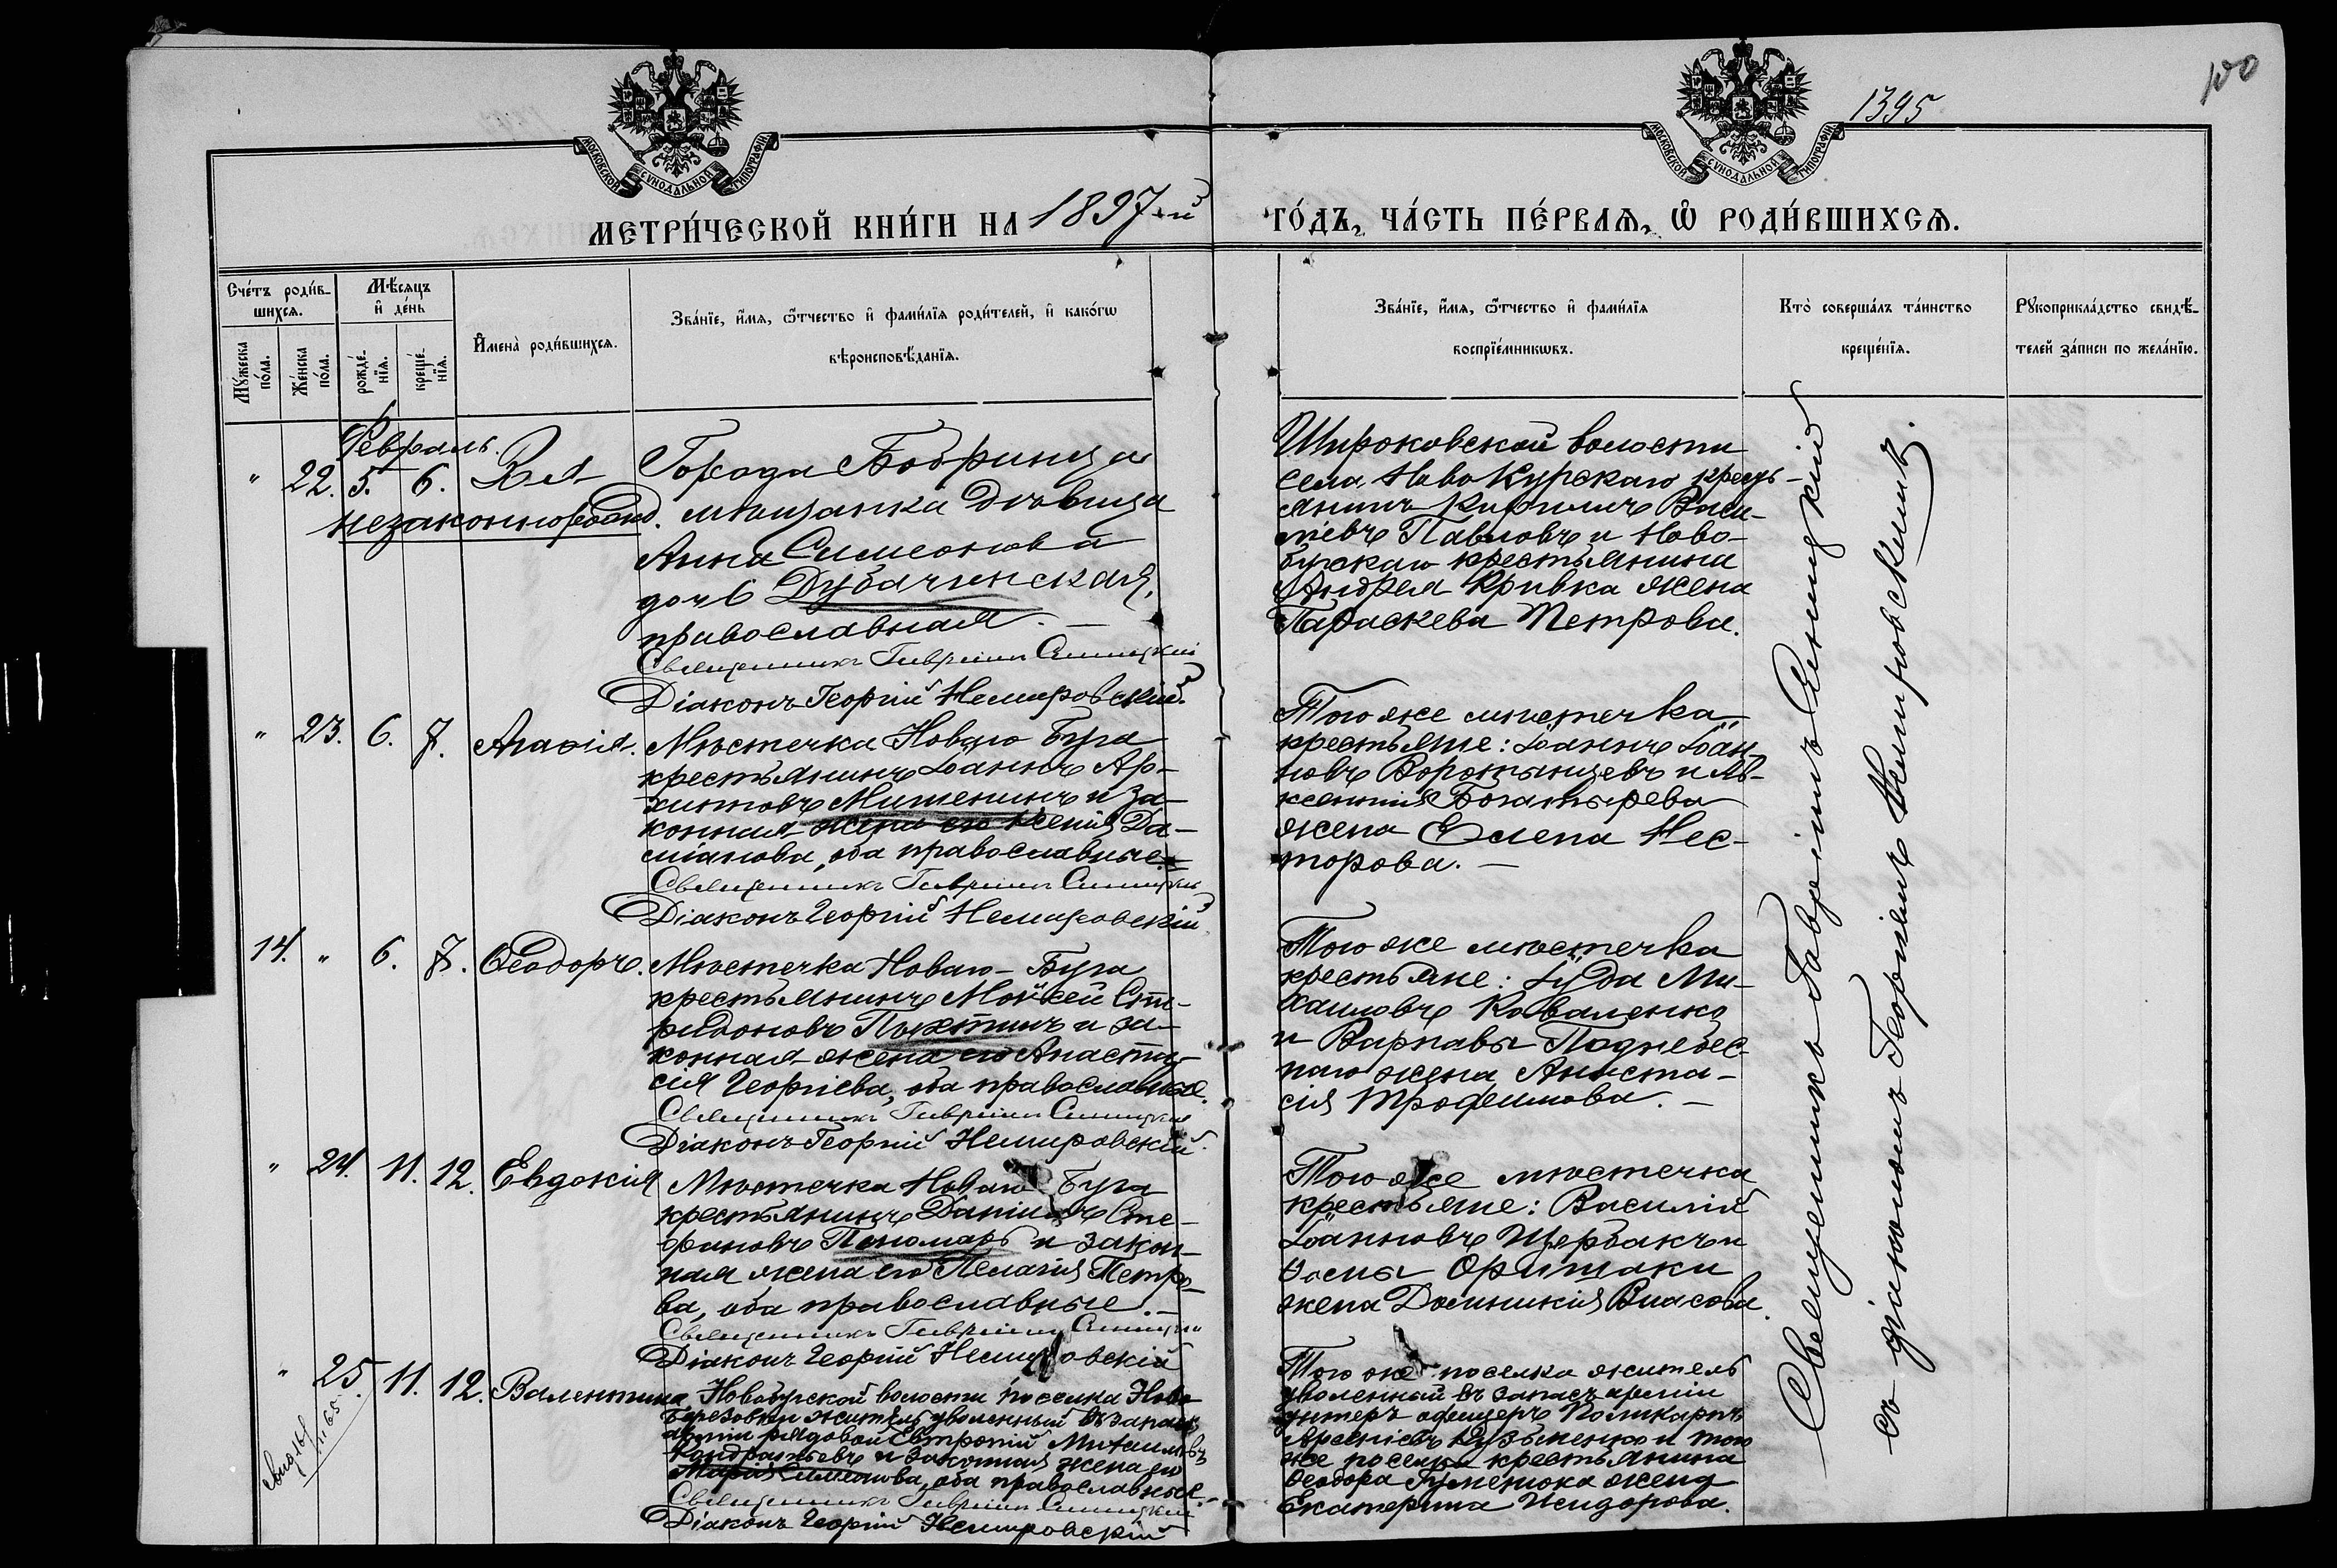 100
1395
МОСКОВСКОЙ СѴНОДАЛЬНОЙ ТИПОГРАФІИ
МОСКОВСКОЙ СѴНОДАЛЬНОЙ ТИПОГРАФІИ
МЕТРИ́ЧЕСКОЙ КНИ́ГИ НА 1897-й ГО́ДЪ, ЧА́СТЬ ПЕ́РВАѦ, Ѡ҆ РОДИ́ВШИХСѦ.
Сче́тъ роди́в-
шихсѧ.
Мꙋ́жеска
по́ла.
Же́нска
по́ла.
Мѣ́сѧцъ
и҆ де́нь
рожде́-
нїѧ.
креще́-
нїѧ.
И҆мена̀ роди́вшихсѧ.
Зва́нїе, и҆́мѧ, ѻ҆́тчество и҆ фами́лїѧ роди́телей, и҆ како́гѡ
вѣроисповѣ́данїѧ.
Зва́нїе, и҆́мѧ, ѻ҆́тчество и҆ фами́лїѧ
воспрїе́мникѡвъ.
Кто̀ соверша́лъ та́инство
креще́нїѧ.
Рꙋкоприкла́дство свидѣ́-
телей за́писи по жела́нїю.
Февраль.
" 22. 5. 6.
незаконнорожд.
Города Бобринца
мѣщанка дѣвица
Анна Симеонова
дочь Дубачинская,
православная. —
Священникъ Гавріилъ Синицкій
Діаконъ Георгій Немировскій.
Широковской волости
села Ново Курскаго кресть-
янинъ Кириллъ Васи-
ліевъ Павловъ и Ново-
бугскаго крестьянина
Андрея Кривка жена
Параскева Петрова.
" 23. 6. 7. Агафія.
Мѣстечка Новаго Буга
крестьянинъ Іоаннъ Ар-
хиповъ Мишенинъ и за-
конная жена его Ксенія Да-
міанова, оба православные.
Священникъ Гавріилъ Синицкій
Діаконъ Георгій Немировскій
Того же мѣстечка
крестьяне: Іоаннъ Іоан-
новъ Воротынцевъ и Ав-
ксентія Богатырева
жена Елена Нес-
торова. —
14. " 6. 7. Ѳеодоръ.
Мѣстечка Новаго-Буга
крестьянинъ Моѵсей Спи-
ридоновъ Пыхтинъ и за-
конная жена его Анаста-
сія Георгіева, оба православные.
Священникъ Гавріилъ Синицкій
Діаконъ Георгій Немировскій.
Того же мѣстечка
крестьяне: Іуда Ми-
хаиловъ Коваленко
и Варнавы Поднебес-
наго жена Анаста-
сія Трофимова. —
" 24. 11. 12. Евдокія
Мѣстечка Новаго Буга
крестьянинъ Даніилъ Сте-
фановъ Пономарь и закон-
ная жена его Пелагія Петро-
ва, оба православные. —
Священникъ Гавріилъ Синицкій
Діаконъ Георгій Немировскій
Того же мѣстечка
крестьяне: Василій
Іоанновъ Щербакъ и
жена Домникія Власова.
" 25. 11. 12. Валентина
Новобугской волости поселка Ново
Березовки житель уволенный въ запасъ
арміи рядовой Евтропій Михаиловъ
Кондратьевъ и законная жена его
Марія Симеонова, оба православные. —
Священникъ Гавріилъ Синицкій
Діаконъ Георгій Немировскій
Того же поселка житель
уволенный въ запасъ арміи
унтеръ офицеръ Поликарпъ
Арсеніевъ Кузьменко и того
же поселка крестьянина
Ѳеодора Гуменюка жена
Екатерина Исидорова.
Священникъ Гавріилъ Синицкій
съ діакономъ Георгіемъ Немировскимъ.